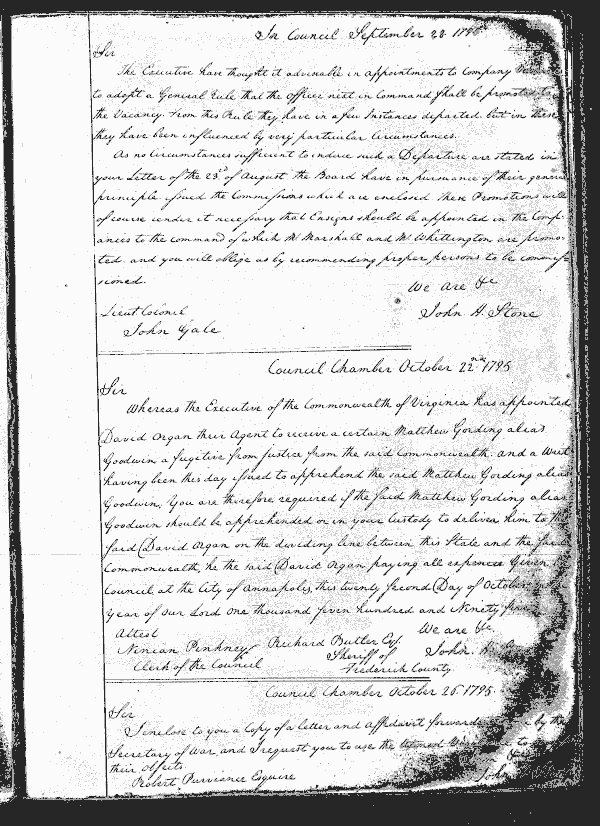 In Council September 28 1795
Sir
The Executive have thought it adviseable in appointments to Company
to adopt a General Rule that the Officer next in Command shall be promoted to
the Vacancy. From this Rule they have in a few Instances departed. but in these
they have been influenced by very particular Circumstances.
As no Circumstances sufficient to induce such a Departure are stated in
your Letter of the 23d of August the Board have in pursuance of their general
principle issued the Commissions which are enclosed. these Promotions will
of course render it necessary that Ensigns should be appointed in the Comp-
anies to the command of which Mr Marshall and Mr Whittington are promo-
ted. and you will oblige us by recommending proper persons to be commis-
sioned.
We are &c
Lieut Colonel
John H. Stone
John Gale
Council Chamber October 22nd 1795
Sir
Whereas the Executive of the Commonwealth of Virginia has appointed
David Organ their Agent to receive a certain Matthew Gording alias
Goodwin a fugitive from justice from the said Commonwealth. and a Writ
having been this day issued to apprehend the said Matthew Gording alias
Goodwin, You are therefore required if the said Matthew Gording alias
Goodwin should be apprehended or in your Custody to deliver him to the
said David Organ on the dividing line between this State and the said
Commonwealth, he the said David Organ paying all expences Given
Council at the City of Annapolis, this twenty second Day of October
year of our Lord One thousand seven hundred and Ninety five
Attest
We are &c.
Ninian Pinkney Richard Butler Esqr.
John H.
Clerk of the Council Sheriff of
Frederick County.
Council Chamber October 26. 1795.
Sir
I inclose to you a Copy of a letter and Affidavit forwarded by the
Secretary of War, and I request you to use the to
their Objects. &c
Robert Purviance Esquire John